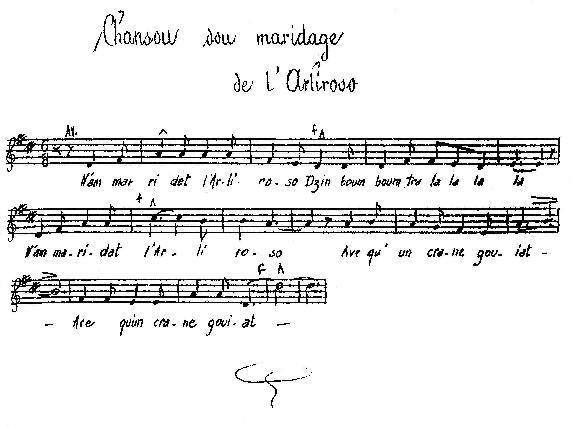 Chansou dou maridage
de l'Arliroso
At.
f A
N'am mar ri det l'Ar-li. ro-so Dzin boum boum tra la la la la
N'am ma-ri-dat l'Ar- li ro-so Ave qu' un cra-ne gou-iat-
G A
- Ave quün cra-ne goui-at -